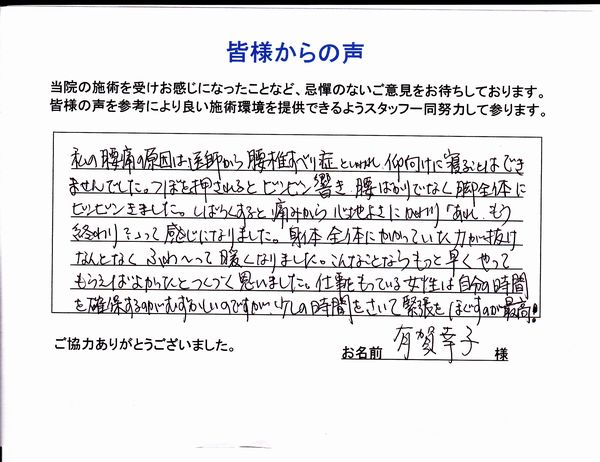 皆様からの声
当院の施術を受けお感じになったことなど、忌憚のないご意見をお待ちしております。
皆様の声を参考により良い施術環境を提供できるようスタッフ一同努力して参ります。
私の腰痛の原因は医師から腰椎すべり症といわれ仰向けに寝ることはでき
ませんでした。つぼを押されるとビンビン響き腰ばかりでなく脚全体に
ビンビンきました。しばらくすると痛みから心地よさにかわり「あれ、もう
終わり」って感じになりました。身体全体にかかっていた力が抜け
なんとなくふわ〜って暖くなりました。こんなことならもっと早くやって
もらえばよかったとつくづく思いました。仕事もっている女性は自分の時間
を確保するのがむずかしいのですが少しの時間をさいて緊張をほぐすのが最高!
ご協力ありがとうございました。
お名前 有賀幸子 様